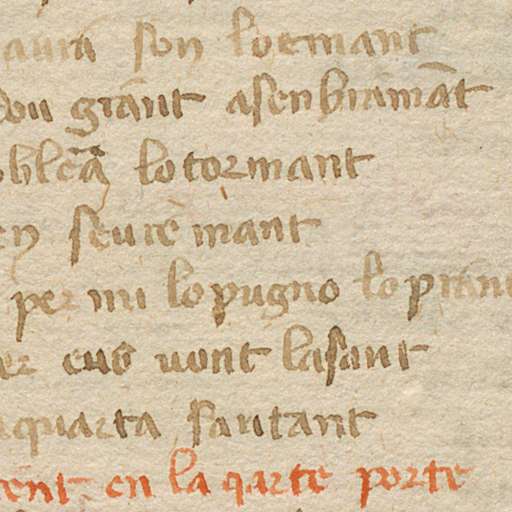 aura son lotmant
dou grant asenbramāt
lotormant
en seurēmant
per mi lo pugno lo pran
er eus vont lasant
quarta sautant
rent en la qarte porte